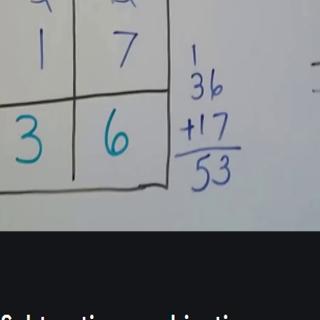 1 7
3 6
1
36
+17
53